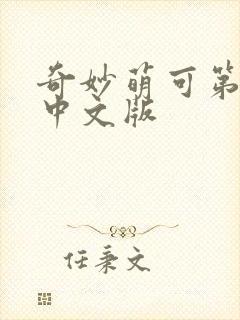 奇妙萌可第
中文版
任秉文